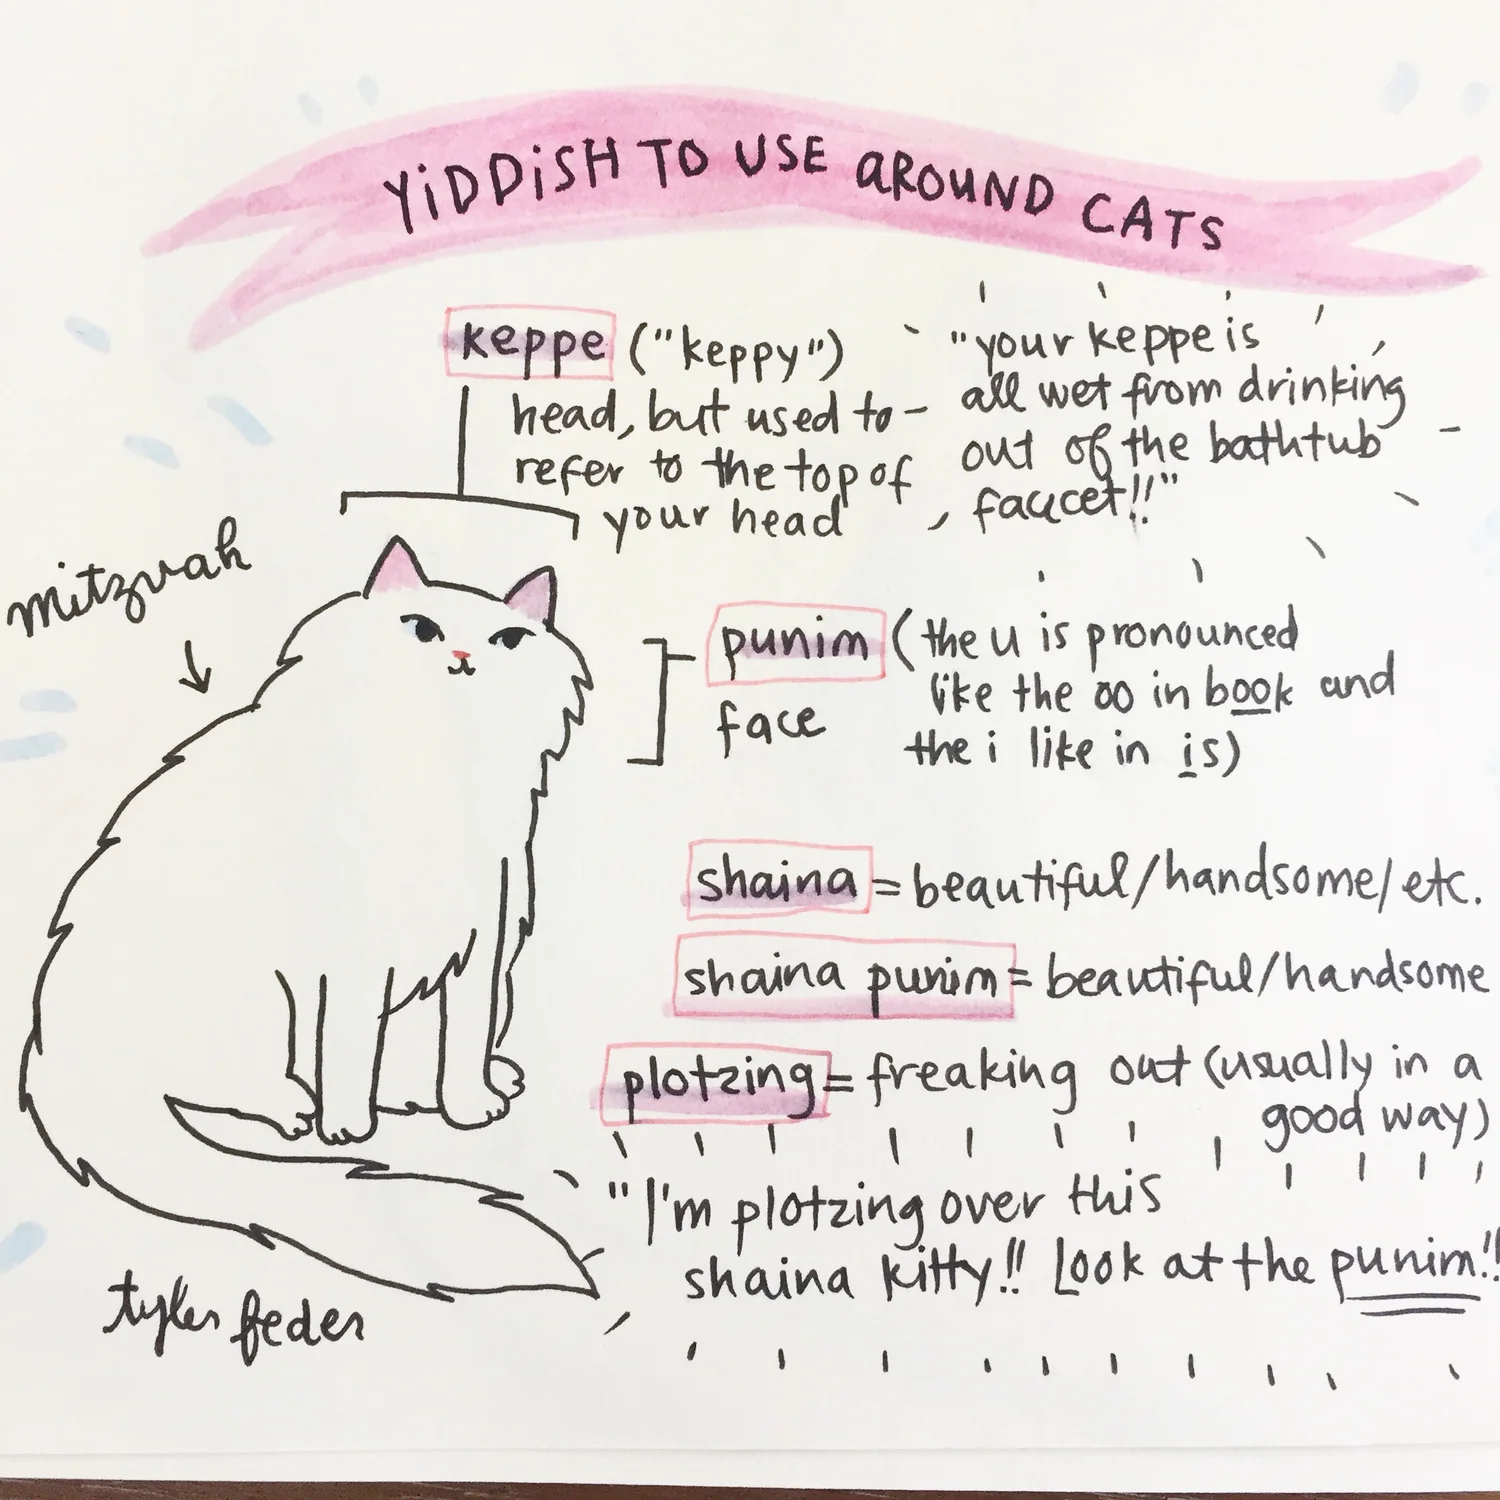 YiDDiSH TO USE aROUND CATS
keppe ("keppy")
head, but used to
refer to the top of
your head
"your keppe is
all wet from drinking
out of the bathtub
faucet!!"
mitzvah
punim (the u is pronounced
like the oo in book and
the i like in is)
face
shaina = beautiful/handsome/etc.
shaina punim = beautiful/handsome
plotzing = freaking out (usually in a
good way)
"I'm plotzing over this
shaina kitty!! Look at the punim!!
tyler feder